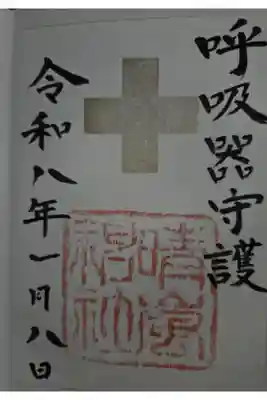 呼吸器守護
令和八年一月八日